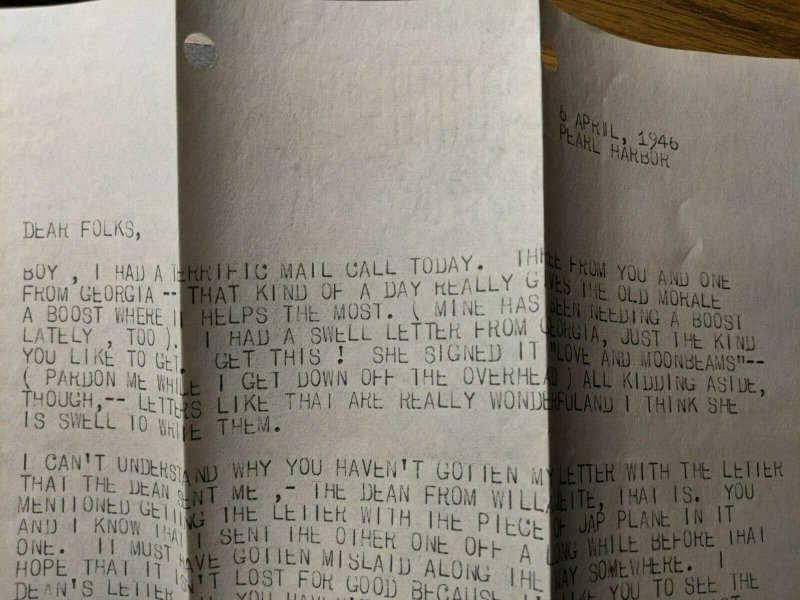 6 APRIL, 1946
PEARL HARBOR
DEAR FOLKS,
BOY , I HAD A TERRIFIC MAIL CALL TODAY. THREE FROM YOU AND ONE
FROM GEORGIA -- THAT KIND OF A DAY REALLY GIVES THE OLD MORALE
A BOOST WHERE IT HELPS THE MOST. ( MINE HAS BEEN NEEDING A BOOST
LATELY , TOO ). I HAD A SWELL LETTER FROM GEORGIA, JUST THE KIND
YOU LIKE TO GET. GET THIS ! SHE SIGNED IT "LOVE AND MOONBEAMS"--
( PARDON ME WHILE I GET DOWN OFF THE OVERHEAD ) ALL KIDDING ASIDE,
THOUGH,-- LETTERS LIKE THAT ARE REALLY WONDERFULAND I THINK SHE
IS SWELL TO WRITE THEM.
I CAN'T UNDERSTAND WHY YOU HAVEN'T GOTTEN MY LETTER WITH THE LETTER
THAT THE DEAN SENT ME ,- THE DEAN FROM WILLAMETTE, THAT IS. YOU
MENTIONED GETTING THE LETTER WITH THE PIECE OF JAP PLANE IN IT
AND I KNOW THAT I SENT THE OTHER ONE OFF A LONG WHILE BEFORE THAT
ONE. IT MUST HAVE GOTTEN MISLAID ALONG THE WAY SOMEWHERE. I
HOPE THAT IT ISN'T LOST FOR GOOD BECAUSE I'D LIKE YOU TO SEE THE
DEAN'S LETTER YOU HAVEN'T